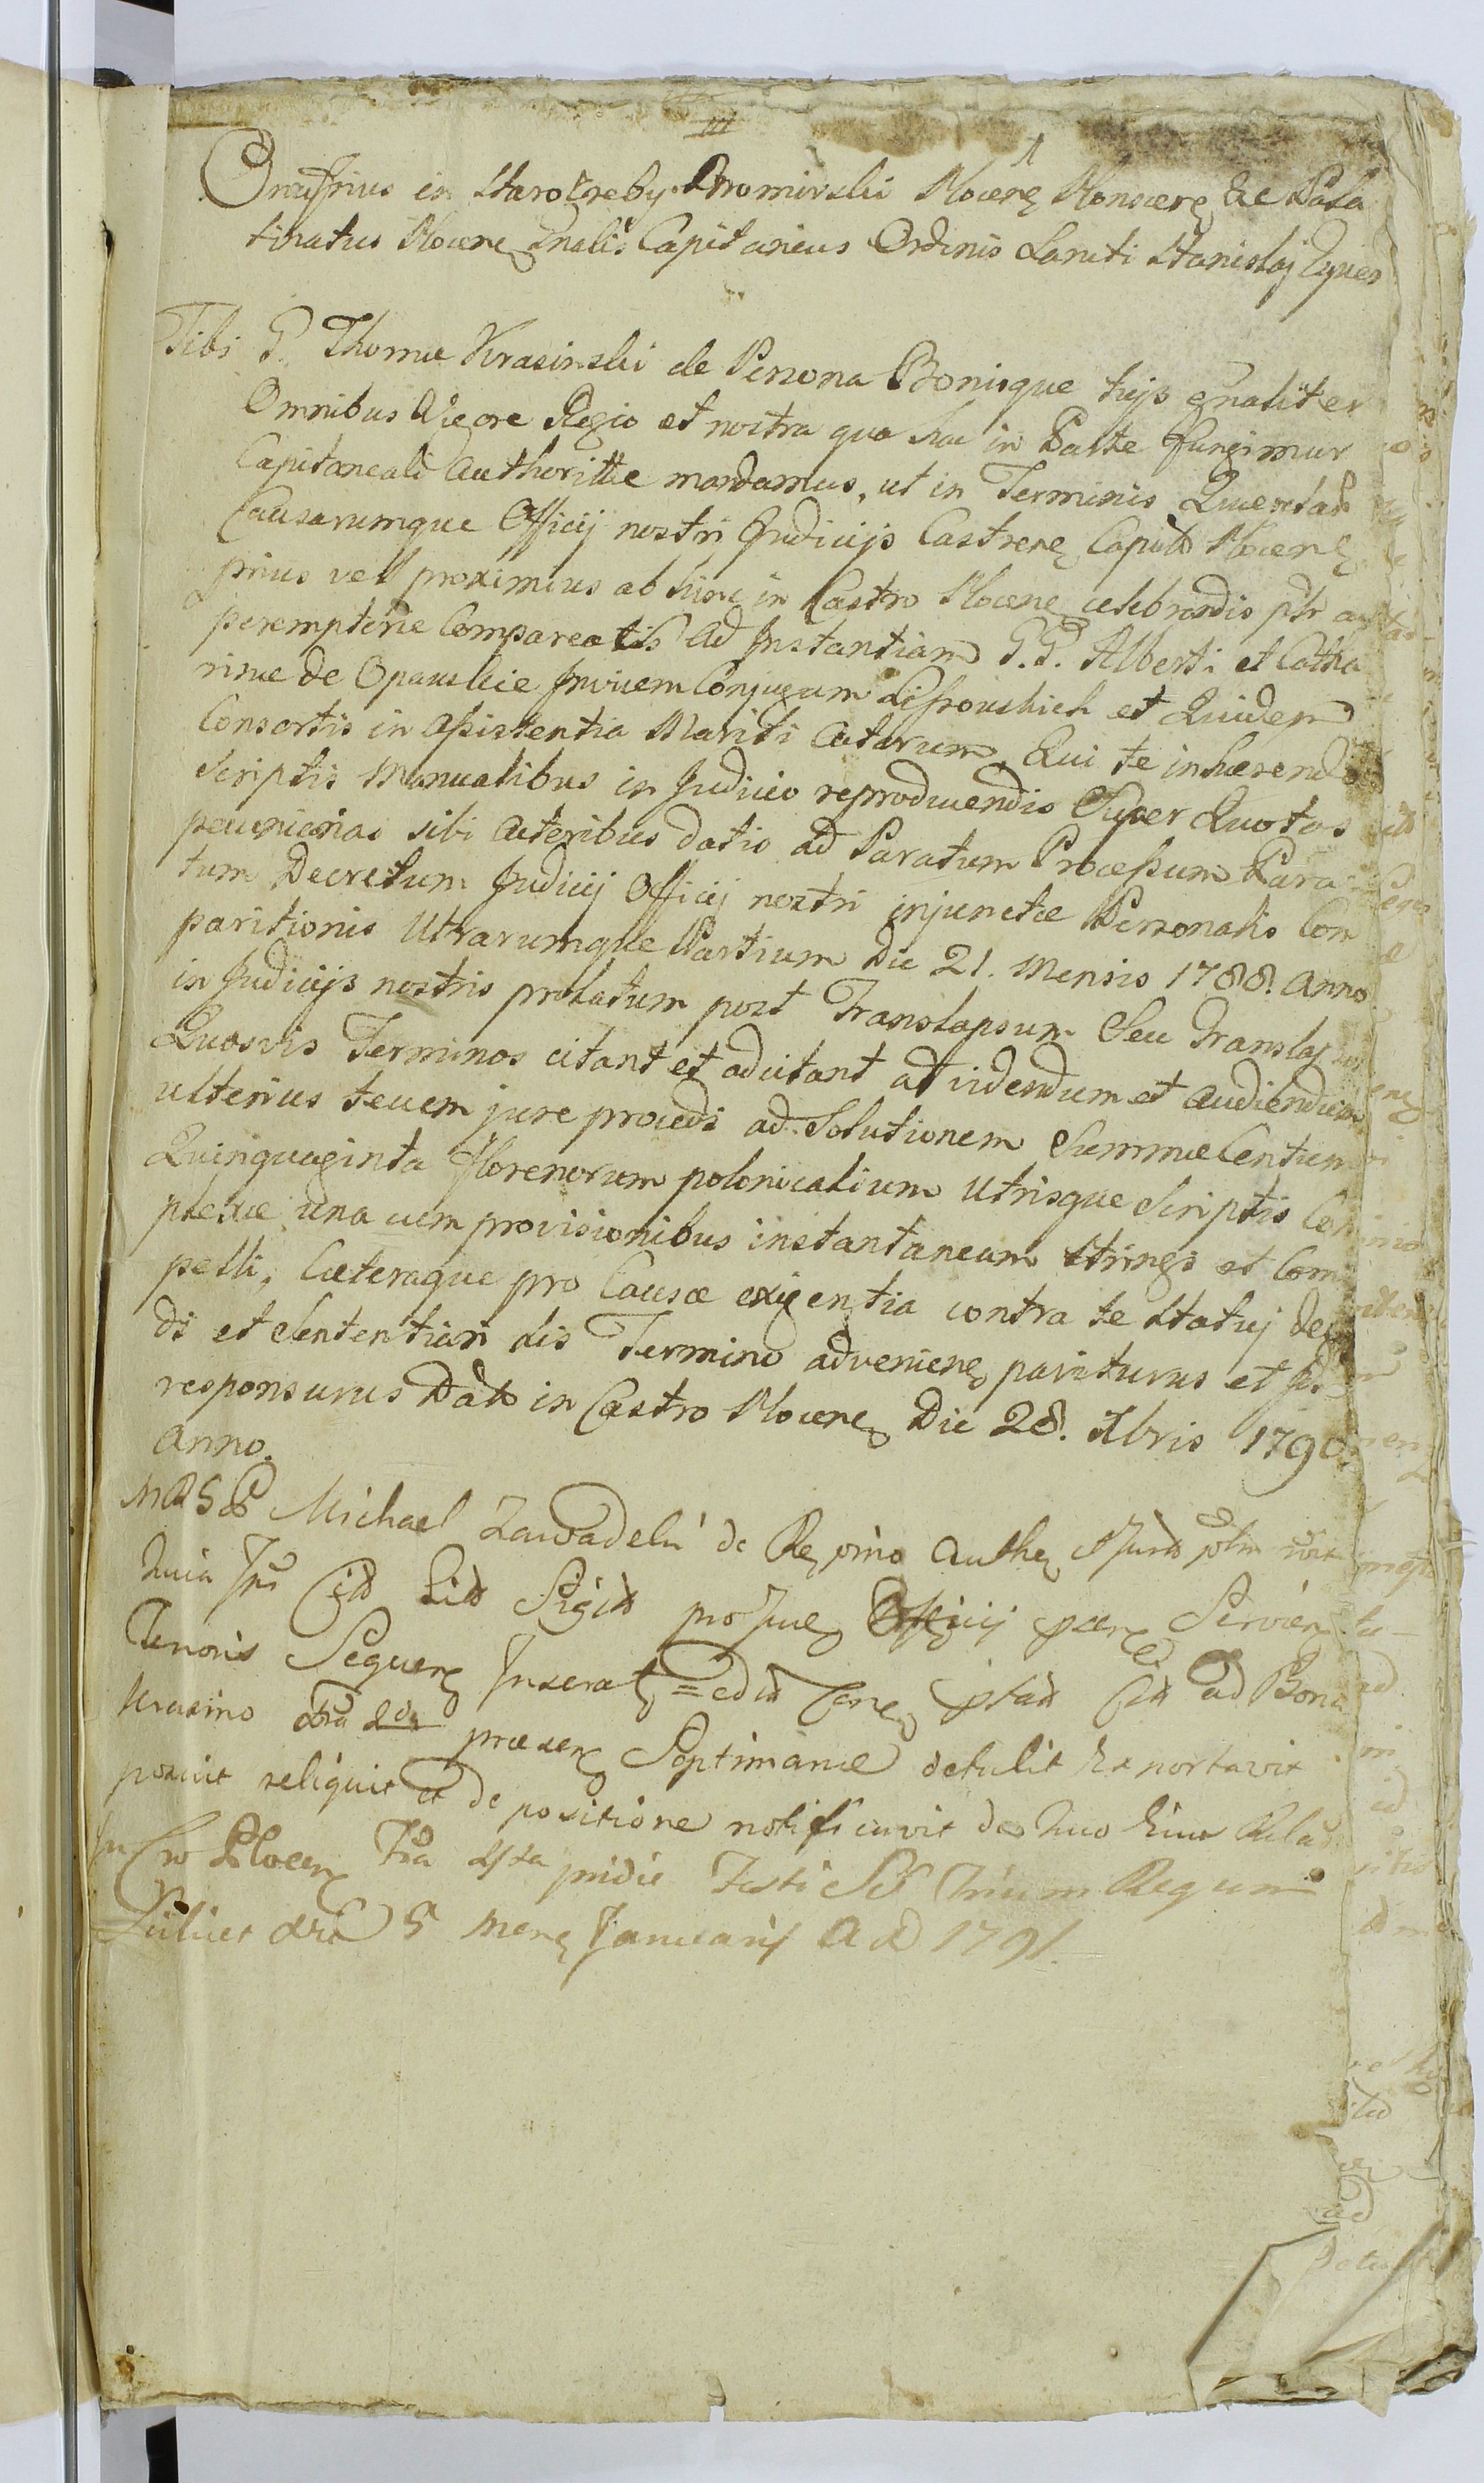 Onuffrius in Starotreby Bromirski Plocen Plonscen &c Pala
tinatus Plocen Gnalis Capitaneus Ordinis Sancti Stanislaj Eques
Tibi G. Thomæ Krasinski de Persona Bonisque tujs gnaliter
Omnibus Vigore Regio et nostra qua hac in Parte fungimur
Capitaneali Authoritte mandamus, ut in Terminis Querelar
Causarumque Officij nostri Judicijs Castren Capitt Plocen
prius vel proximius ab hinc in Castro Plocen celebrandis pltr ac
peremptorie Compareatis Ad Instantiam G.G. Alberti et Catha
rinæ de Opawskie Invicem Conjugum Lissowskich et Quidem
Consortis in Assistentia Mariti Actorum, Qui te inhærendo
Scriptis Manualibus in Judicio reproducendis Super Quotas
pecuniarias sibi Actoribus datis ad Paratum Processum Para
tum Decretum Judicij Officij nostri injunctæ Personalis Com
paritionis Utrarumque Partium Die 21. Mensis 1788. Anno
in Judicijs nostris prolatum post Translapsum Seu Translapsos
Quosvis Terminos citant et adcitant ad videndum et audiendum
ulterius tecum jure procedi ad Solutionem Summæ Centum
Quinquaginta Florenorum polonicalium Utrisque Scriptis Com
plexæ una cum provisionibus instantaneam stringi et Com
pelli, Cæteraque pro Causæ exigentia contra te statuj decer
di et Sententiari Sis Termino advenien pariturus et
responsurus Datt in Castro Plocen Die 28. Xbris 1790.
Anno.
Michael Zawadzki de Rempino Authen
Quia Citt Sigitt Officij Servien
Tenoris Sequen Inserat ad Bona
Krasino præsen Septimanæ detulit Exportavit
posuit reliquit et de positione notificavit de Quo hanc
Plocen pridie Festi Trium Regum
Scilicet die 5 Mens Januarij A D 1791.